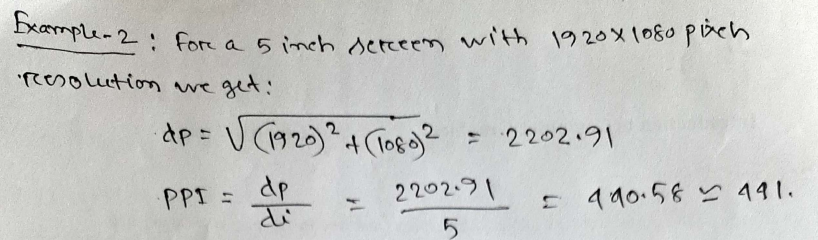 Example-2 : For a 5 inch screen with 1920×1080 pixels
resolution we get:
dp = √(1920)² + (1080)² = 2202.91
PPI = dp/di = 2202.91/5 = 440.58 ≃ 441.